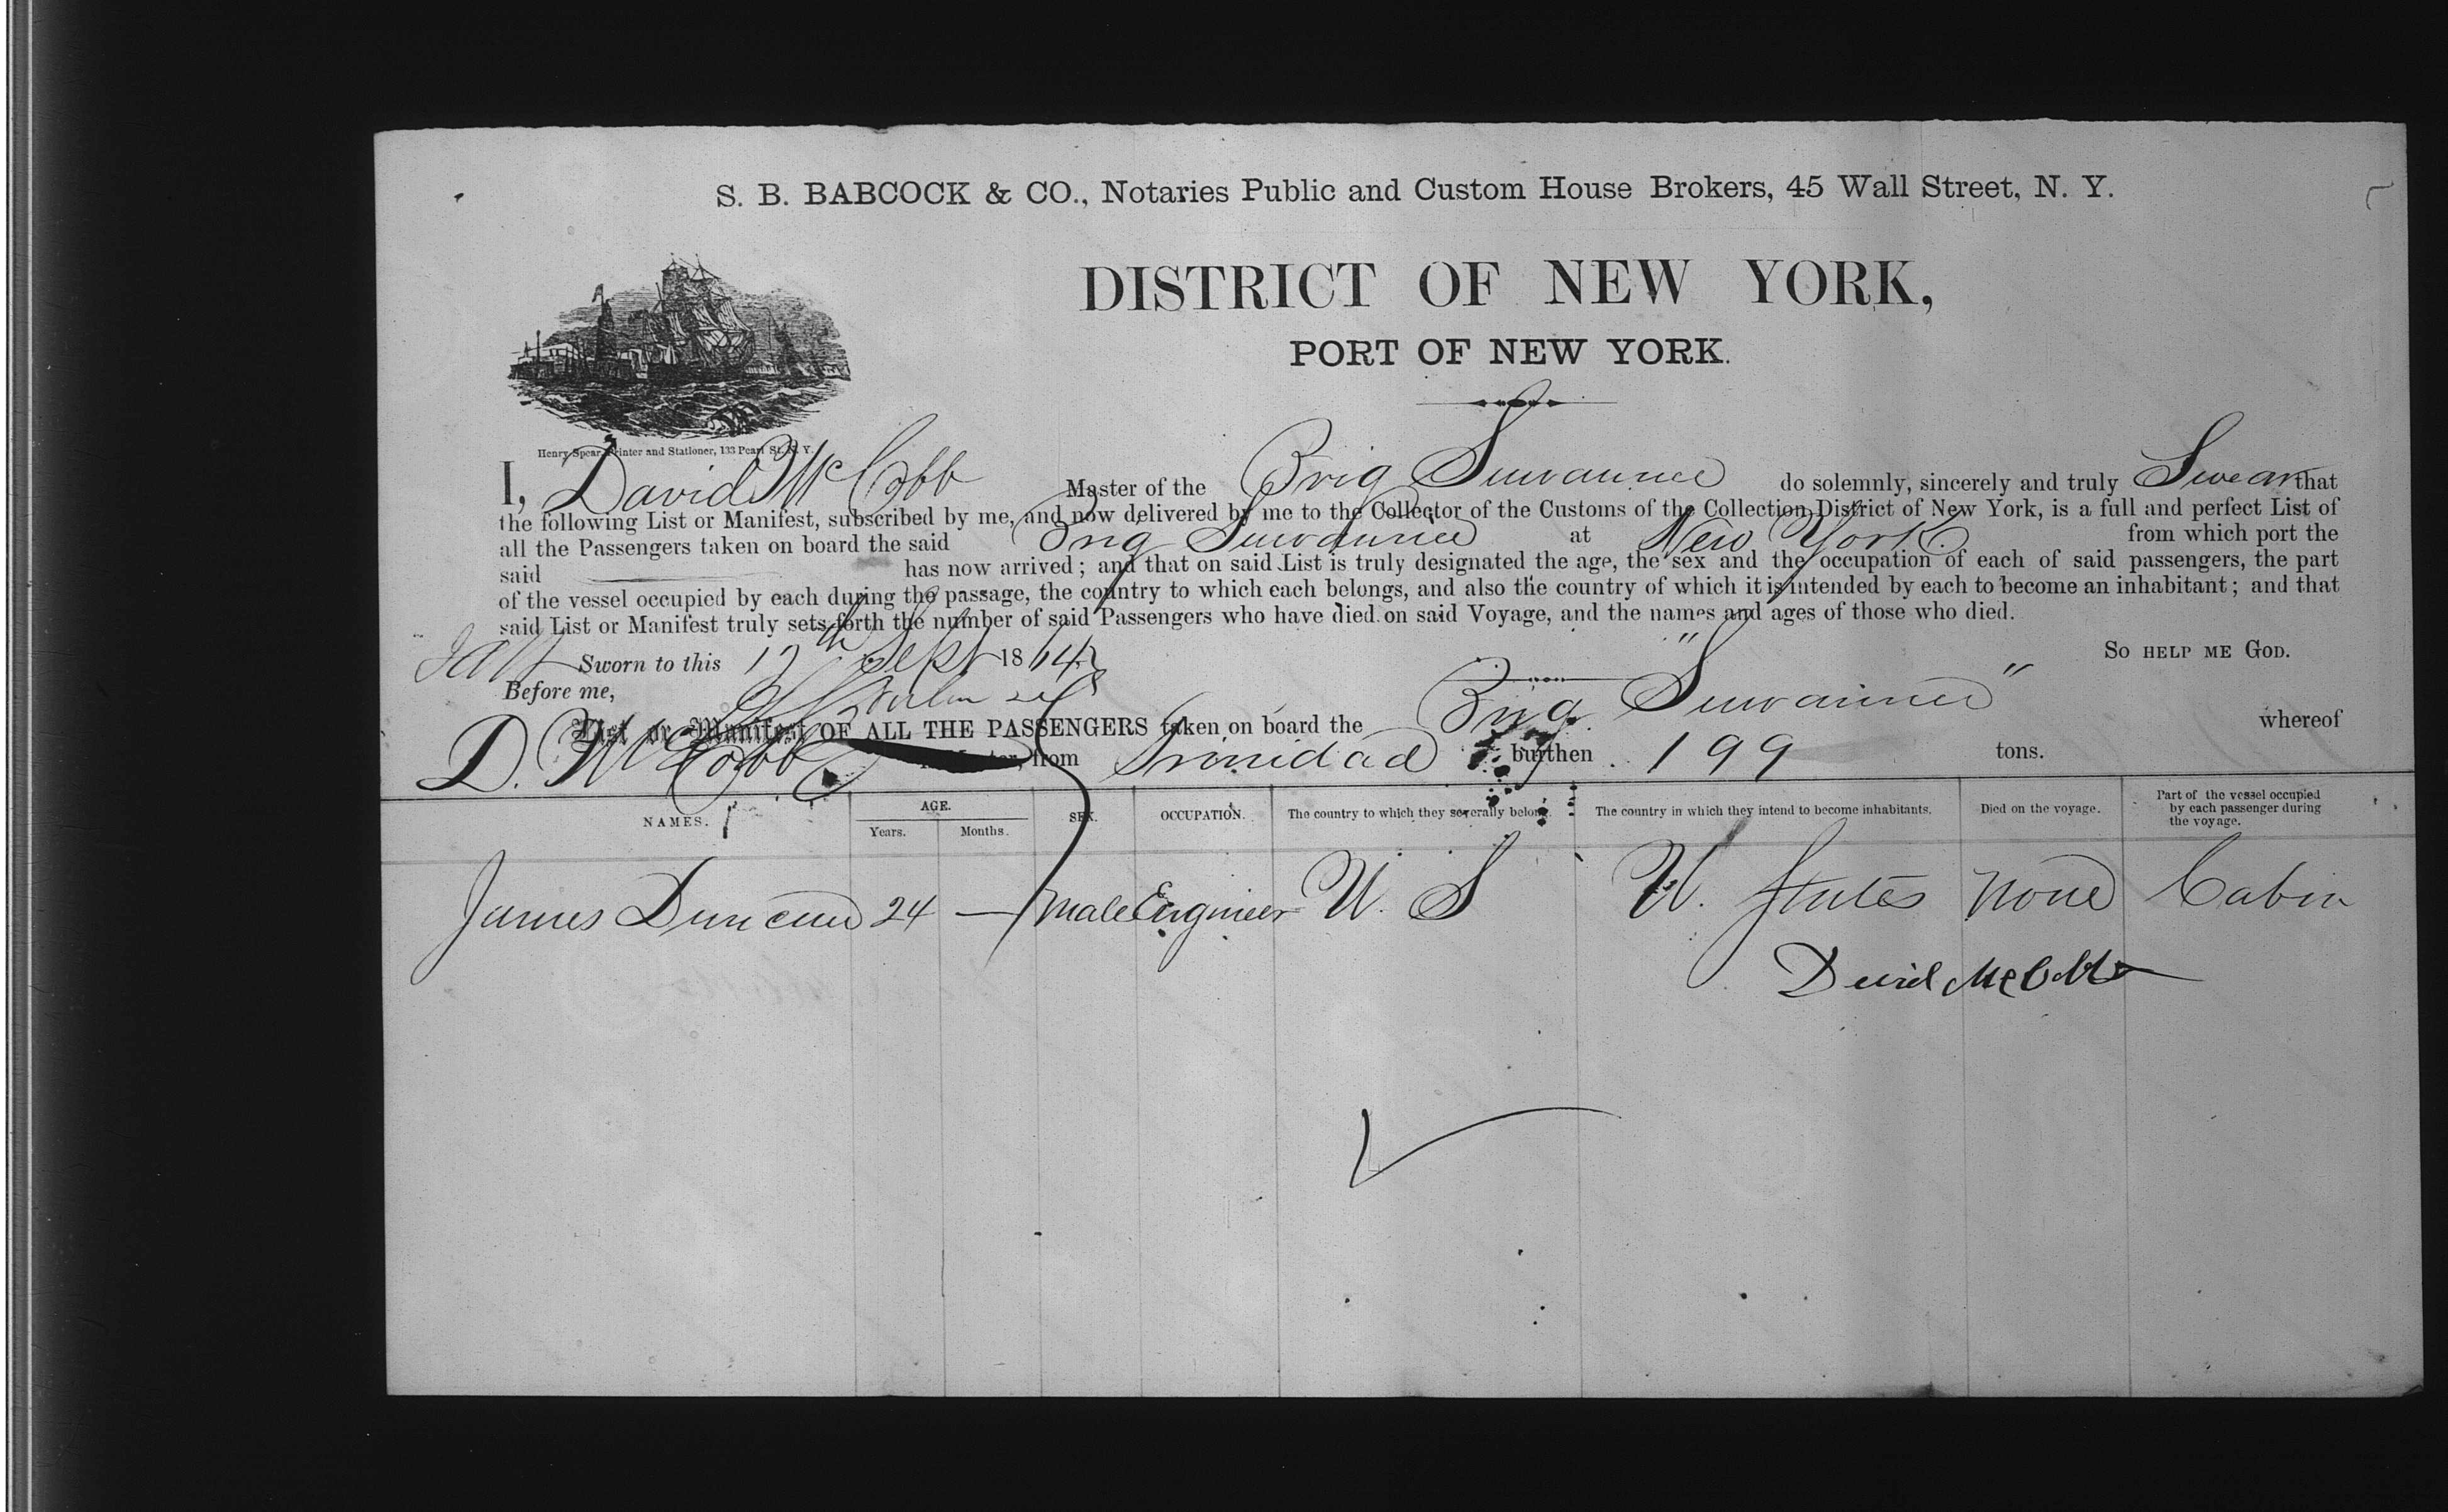 S. B. BABCOCK & CO., Notaries Public and Custom House Brokers, 45 Wall Street, N. Y.
DISTRICT OF NEW YORK,
PORT OF NEW YORK.
Henry Spear, Printer and Stationer, 133 Pearl St. N. Y.
I, David McCobb Master of the Brig Suwannee do solemnly, sincerely and truly Swear that
the following List or Manifest, subscribed by me, and now delivered by me to the Collector of the Customs of the Collection District of New York, is a full and perfect List of
all the Passengers taken on board the said Brig Suwannee at New York from which port the
said has now arrived; and that on said List is truly designated the age, the sex and the occupation of each of said passengers, the part
of the vessel occupied by each during the passage, the country to which each belongs, and also the country of which it is intended by each to become an inhabitant; and that
said List or Manifest truly sets forth the number of said Passengers who have died on said Voyage, and the names and ages of those who died.
So help me God.
Sworn to this 17th Sept 1864
Before me,
List or Manifest OF ALL THE PASSENGERS taken on board the Brig "Suwannee" whereof
D. McCobb Master, from Trinidad burthen 199 tons.
NAMES. AGE. Years. Months. SEX. OCCUPATION. The country to which they severally belong. The country in which they intend to become inhabitants. Died on the voyage. Part of the vessel occupied by each passenger during the voyage.
James Duncan 24 — Male Engineer U. S U. States None Cabin
David McCobb